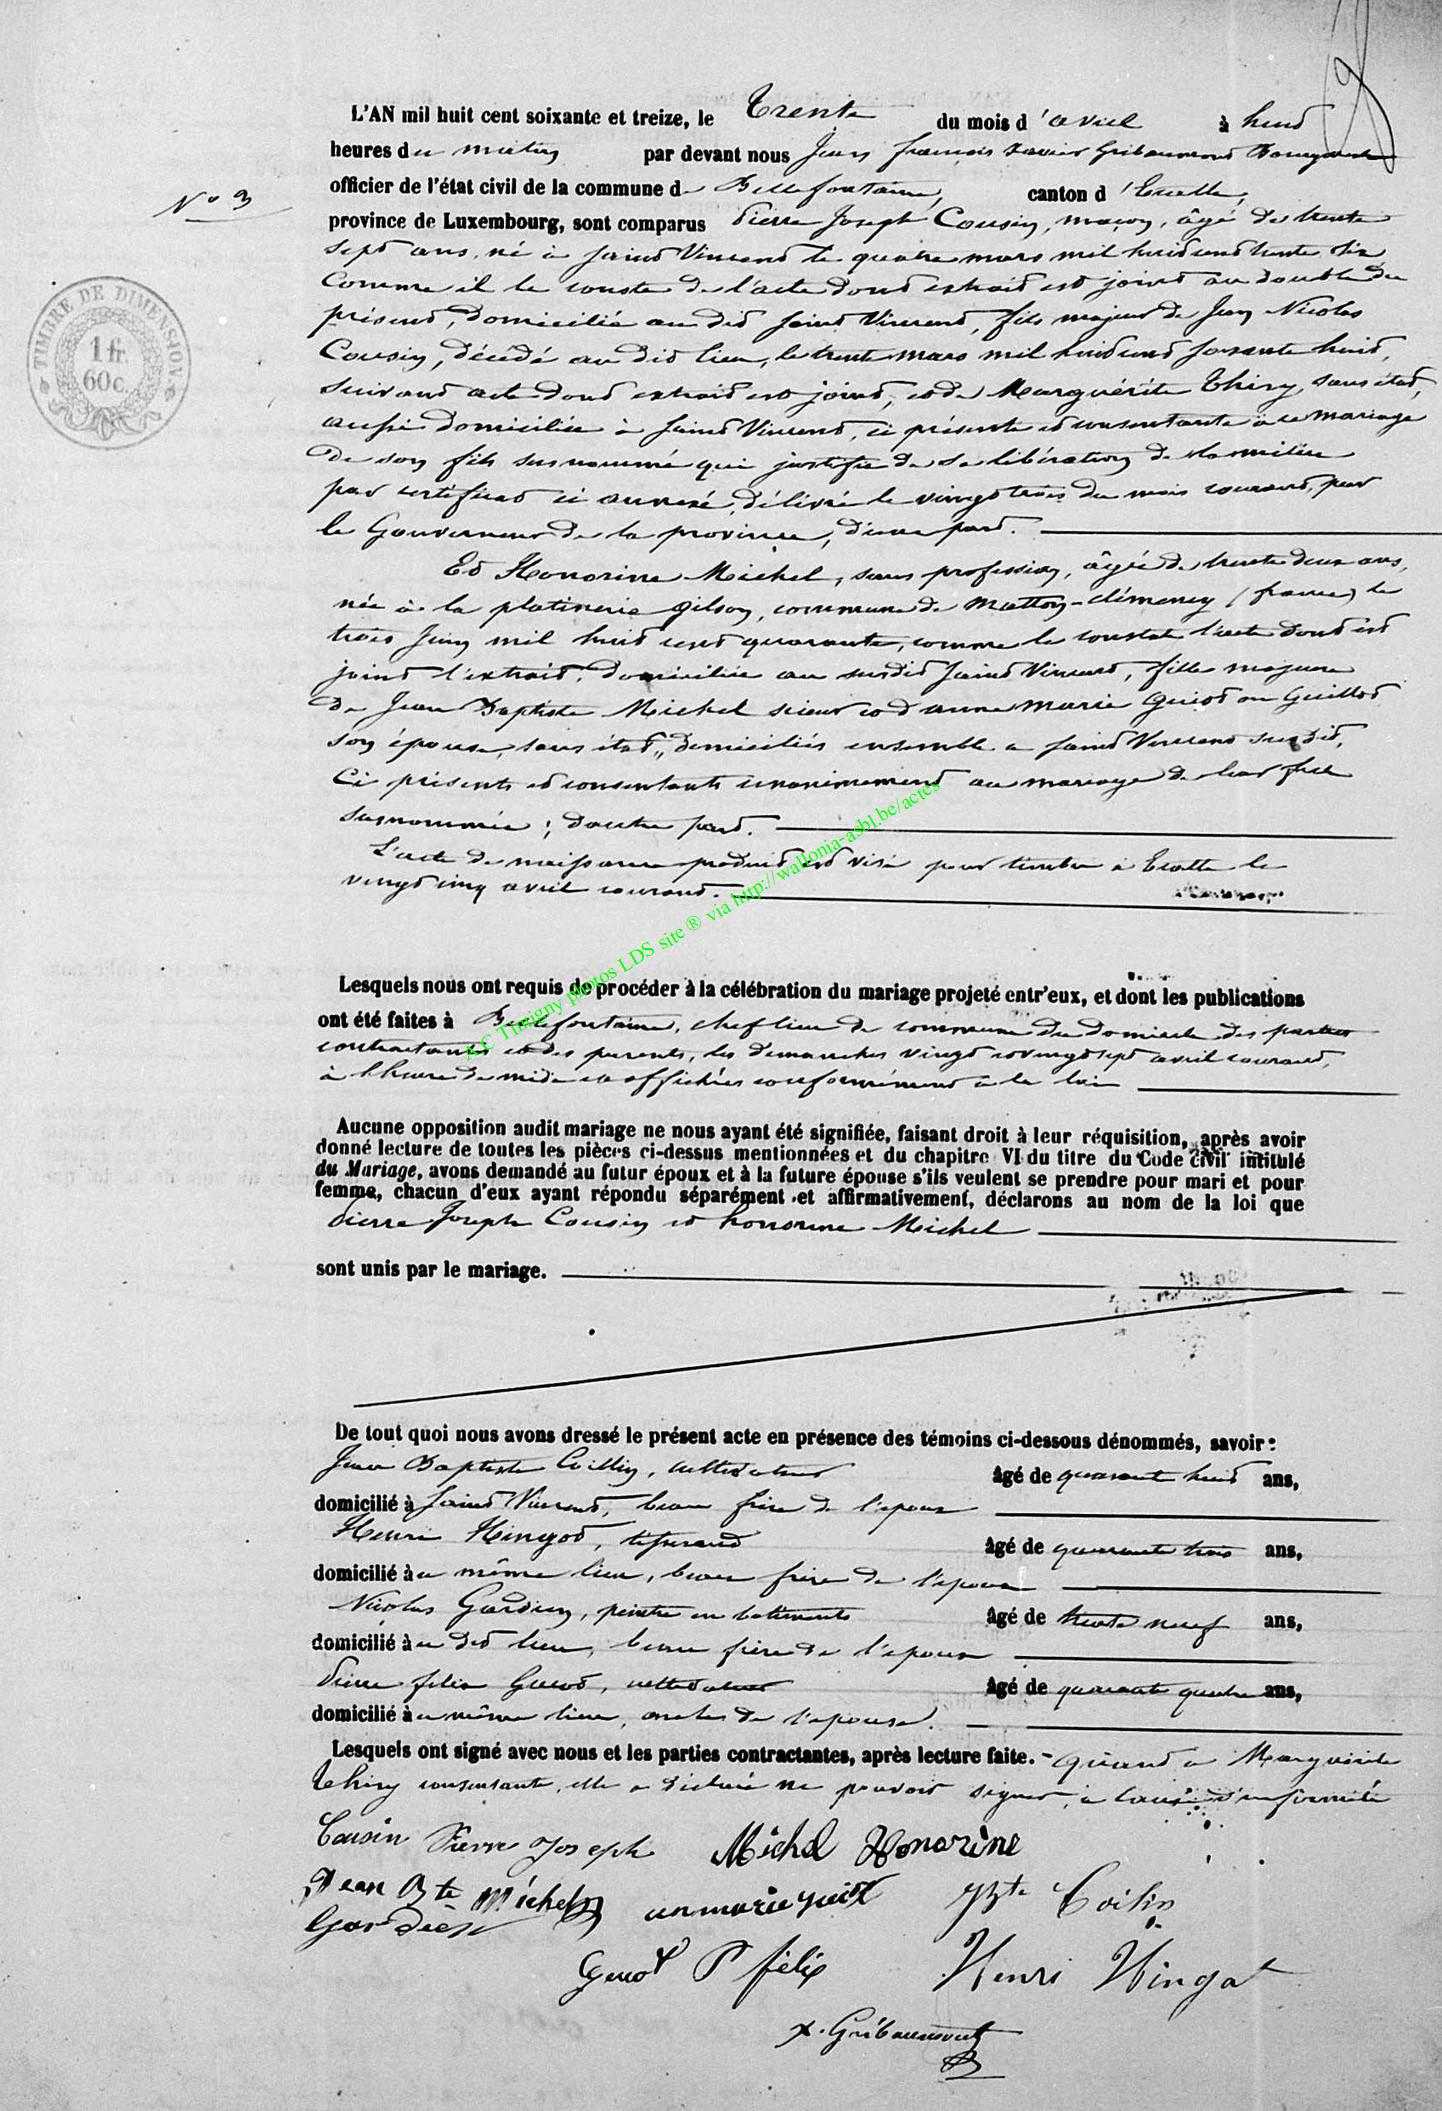 L'AN mil huit cent soixante et treize, le Trente du mois d'avril à huit
heures du matin par devant nous Jean françois xavier Gribaumont Bourgmestre
officier de l'état civil de la commune de Bellefontaine, canton d'Etalle,
N° 3
province de Luxembourg, sont comparus Pierre Joseph Cousin, maçon, âgé de trente
sept ans, né à Saint Vincent le quatre mars mil huit cent trente six
TIMBRE DE DIMENSION
1 fr.
60c.
comme il le conste de l'acte dont extrait est joint au double du
présent, domicilié au dit Saint Vincent, fils majeur de Jean Nicolas
Cousin, décédé au dit lieu, le trente mars mil huit cent soixante huit,
suivant acte dont extrait est joint, et de Marguérite Thiry, sans état,
aussi domiciliée à Saint Vincent, ci présente et consentante à ce mariage
de son fils susnommé qui justifie de sa libération de la milice
par certificat ci annexé, délivré le vingt trois du mois courant, par
le Gouverneur de la province, d'une part.
Et Honorine Michel, sans profession, âgée de trente deux ans,
née à la platinerie gilson, commune de Matton-clémency (france) le
trois Juin mil huit cent quarante, comme le constate l'acte dont est
joint l'extrait, domiciliée au susdit Saint Vincent, fille majeure
de Jean Baptiste Michel scieur et d'anne Marie Guiot ou Guillot
son épouse, sans état, domiciliés ensemble à Saint Vincent susdit,
Ci présents et consentants unanimement au mariage de leur fille
susnommée ; d'autre part.
L'acte de naissance produit est visé pour timbre à Etalle le
vingt cinq avril courant.
A.C Tintigny photos LDS site ® via http://wallonia-asbl.be/actes
Lesquels nous ont requis de procéder à la célébration du mariage projeté entr'eux, et dont les publications
ont été faites à Bellefontaine, chef lieu de commune du domicile des parties
contractantes et des parents, les dimanches vingt et vingt sept avril courant,
à l'heure de midi et affichées conformément à la loi
Aucune opposition audit mariage ne nous ayant été signifiée, faisant droit à leur réquisition, après avoir
donné lecture de toutes les pièces ci-dessus mentionnées et du chapitre VI du titre du Code civil intitulé
du Mariage, avons demandé au futur époux et à la future épouse s'ils veulent se prendre pour mari et pour
femme, chacun d'eux ayant répondu séparément et affirmativement, déclarons au nom de la loi que
Pierre Joseph Cousin et honorine Michel
sont unis par le mariage.
De tout quoi nous avons dressé le présent acte en présence des témoins ci-dessous dénommés, savoir :
Jean Baptiste Coillin, cultivateur âgé de quarante huit ans,
domicilié à Saint Vincent, beau frère de l'époux
Henri Hingot, tisserand âgé de quarante trois ans,
domicilié à u même lieu, beau frère de l'époux
Nicolas Gardien, peintre en batiments âgé de trente neuf ans,
domicilié à u dit lieu, beau frère de l'époux
Pierre felix Guiot, cultivateur âgé de quarante quatre ans,
domicilié à u même lieu, oncle de l'épouse.
Lesquels ont signé avec nous et les parties contractantes, après lecture faite. - Quant à Marguérite
Thiry consentante, elle a déclaré ne pouvoir signer, à cause d'infirmité
Cousin Pierre Joseph Michel Honorine
Jean Bte Michel anmarie guiot JBte Coilin
Gardien
Guiot P félix Henri Hingot
X. Gribaumont